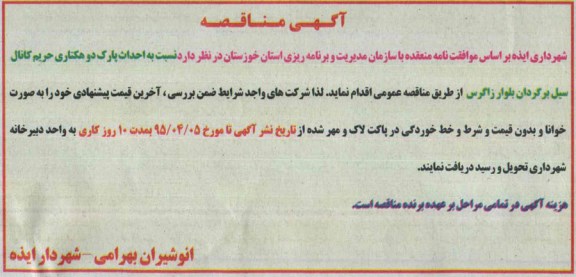 آگهی مناقصه
شهرداری ایذه بر اساس موافقت نامه منعقده با سازمان مدیریت و برنامه ریزی استان خوزستان در نظر دارد نسبت به احداث پارک دو هکتاری حریم کانال
سیل برگردان بلوار زاگرس از طریق مناقصه عمومی اقدام نماید. لذا شرکت های واجد شرایط ضمن بررسی ، آخرین قیمت پیشنهادی خود را به صورت
خوانا و بدون قیمت و شرط و خط خوردگی در پاکت لاک و مهر شده از تاریخ نشر آگهی تا مورخ ۹۵/۰۴/۰۵ بمدت ۱۰ روز کاری به واحد دبیرخانه
شهرداری تحویل و رسید دریافت نمایند.
هزینه آگهی در تمامی مراحل بر عهده برنده مناقصه است.
انوشیران بهرامی - شهردار ایذه